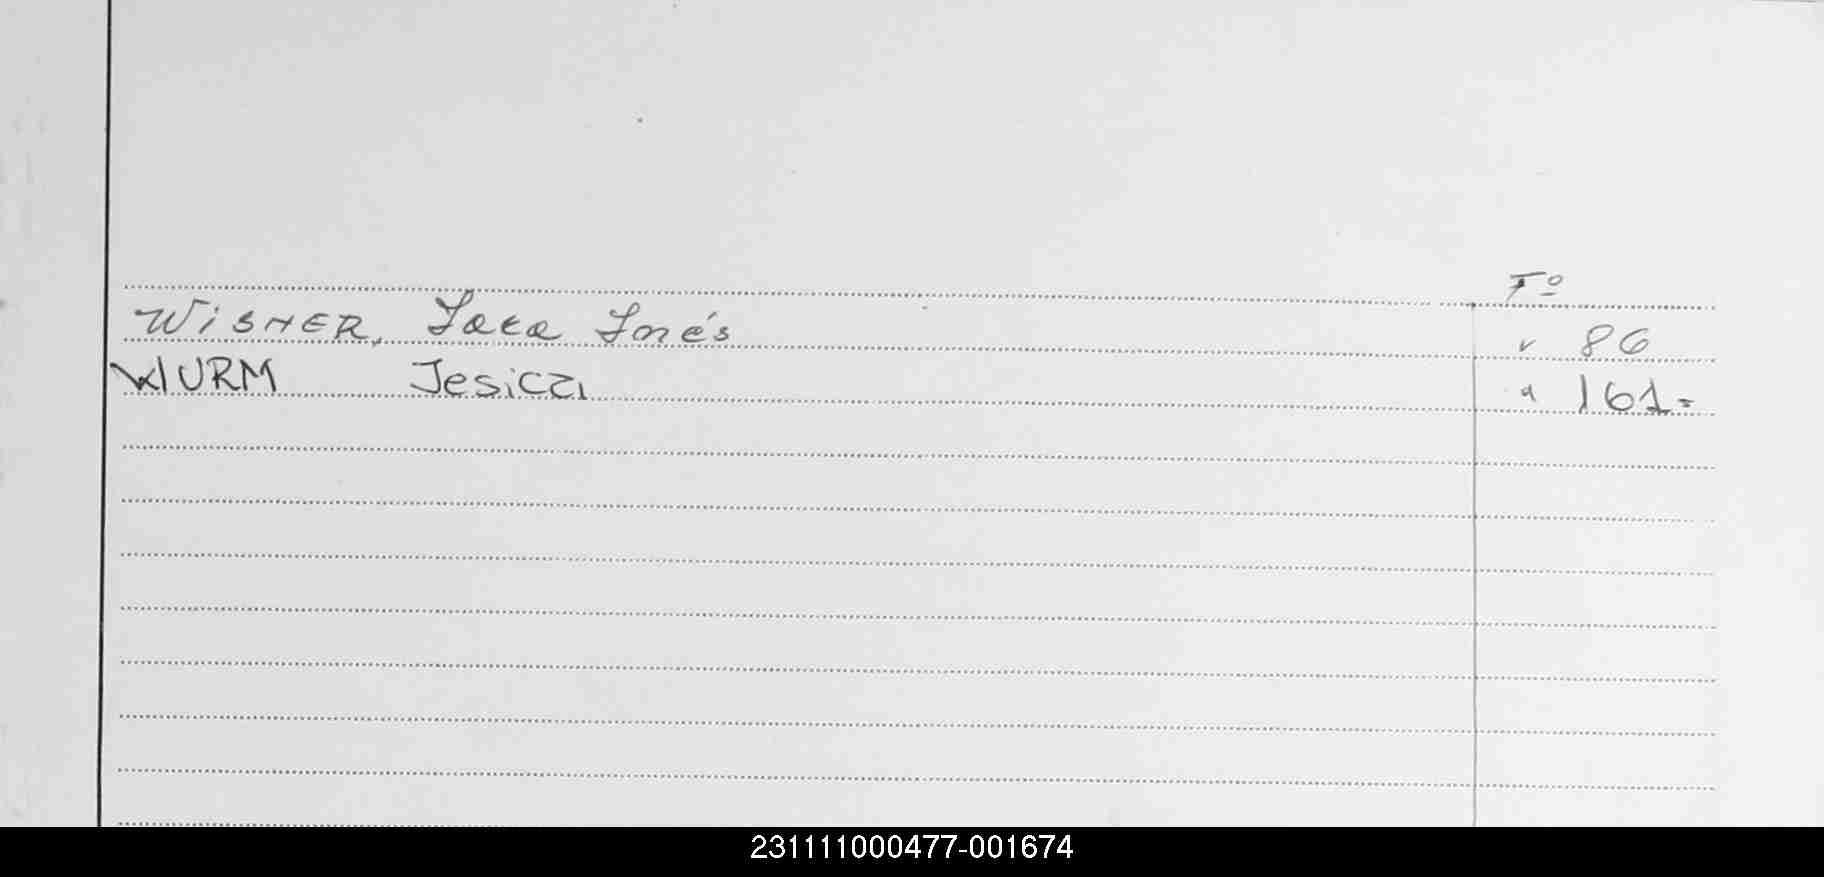 Fº
WiSNER, Sara Inés " 86
WURM Jesica " 161-
231111000477-001674